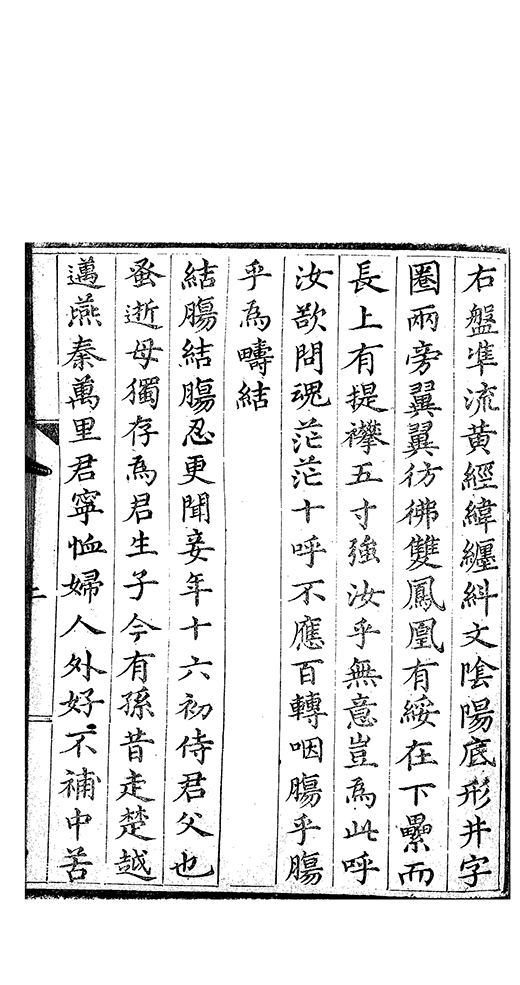 右盤準流黃經緯纒糾文陰陽底形井字
圈兩旁翼翼彷彿雙鳳凰有綏在下纍而
長上有提襻五寸強汝乎無意豈為此呼
汝欲問魂茫茫十呼不應百轉咽腸乎腸
乎為疇結
結腸結腸忍更聞妾年十六初侍君父也
蚤逝母獨存為君生子今有孫昔走楚越
邁燕秦萬里君寧恤婦人外好不補中苦